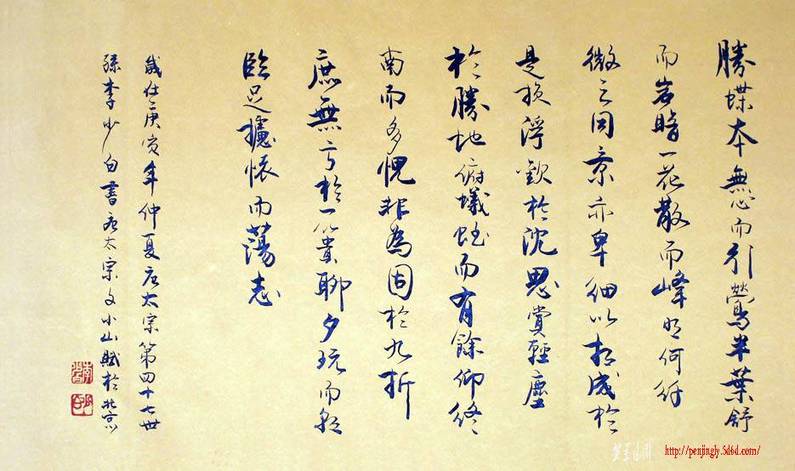 勝蝶本無心而引鶯半葉舒
而岩暗一花散而峰明何纤
微之同景亦卑細以相成於
是损浮歡於沈思賞輕塵
於勝地俯蟻垤而有餘仰終
南而多愧非為固於九折
庶無亏於一簣聊夕玩而朝
臨足攄懷而蕩志
歲在庚寅年仲夏唐太宗第四十七世
孫李少白書唐太宗文小山賦於北京
http://penjingly.5d6d.com/